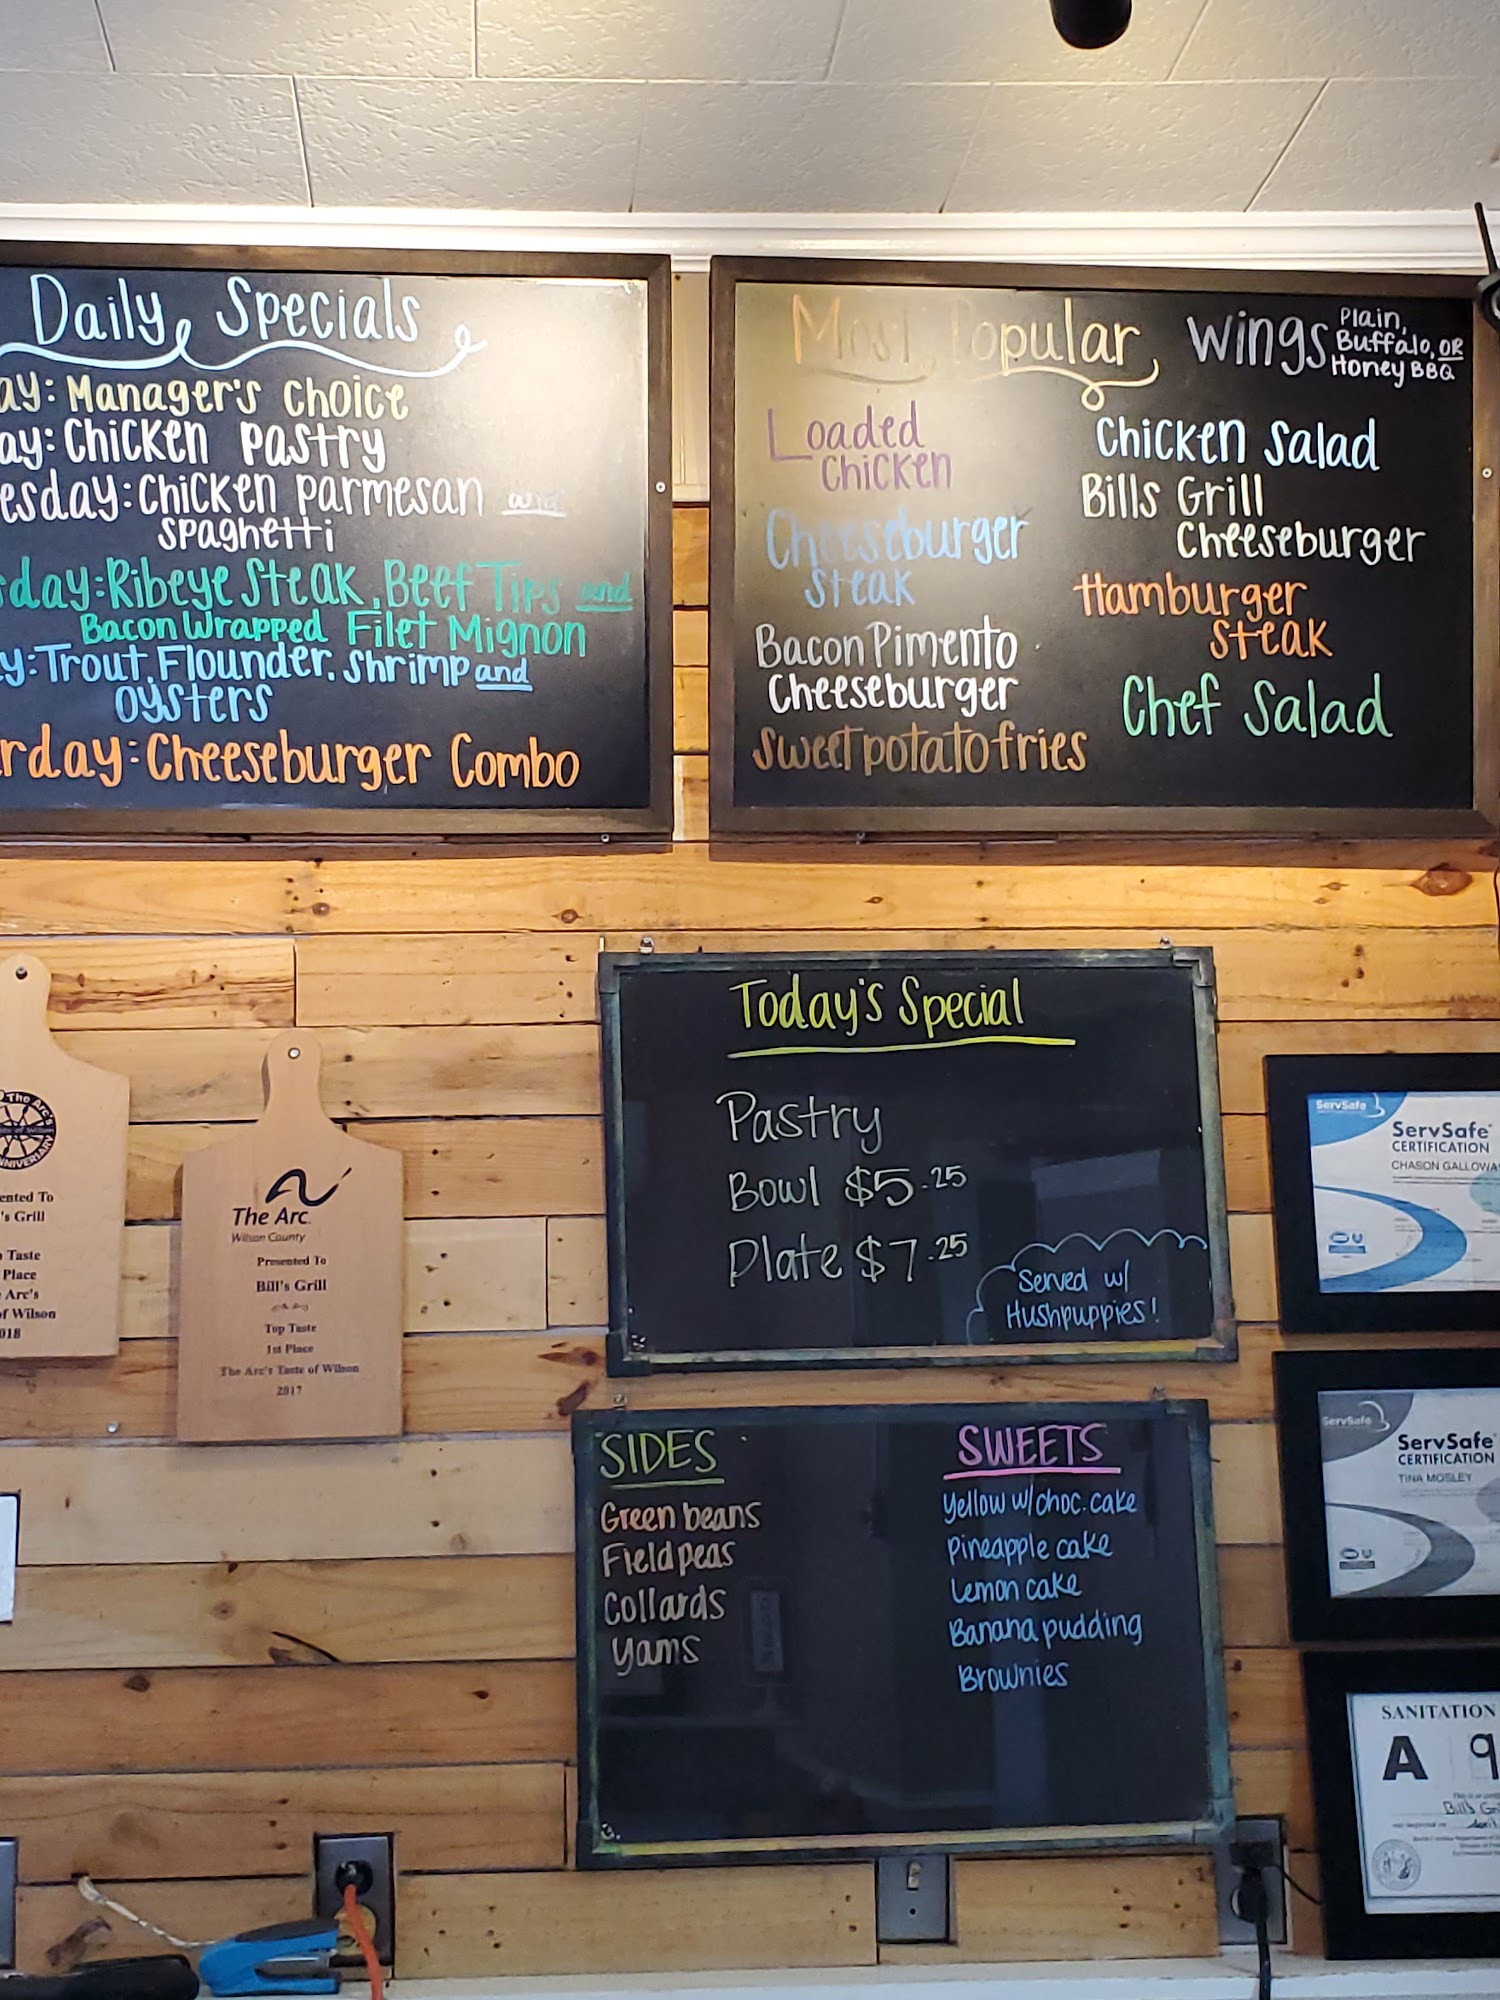 Daily Specials
ay: Manager's Choice
ay: Chicken Pastry
esday: Chicken Parmesan and
Spaghetti
sday: Ribeye Steak, Beef Tips and
Bacon Wrapped Filet Mignon
y: Trout, Flounder, Shrimp and
Oysters
rday: Cheeseburger Combo
Most Popular
Loaded
Chicken
Cheeseburger
Steak
Bacon Pimento
Cheeseburger
Sweet potato fries
Wings Plain,
Buffalo, OR
Honey BBQ
Chicken Salad
Bills Grill
Cheeseburger
Hamburger
Steak
Chef Salad
Today's Special
Pastry
Bowl $5.25
Plate $7.25
Served w/
Hushpuppies!
SIDES
Green beans
Field peas
Collards
Yams
SWEETS
Yellow w/ choc. cake
Pineapple cake
Lemon cake
Banana pudding
Brownies
The Arc's
ented To
's Grill
Taste
Place
Arc's
of Wilson
018
The Arc
Wilson County
Presented To
Bill's Grill
Top Taste
1st Place
The Arc's Taste of Wilson
2017
ServSafe
ServSafe
CERTIFICATION
CHASON GALLOWA
ServSafe
ServSafe
CERTIFICATION
TINA MOSLEY
SANITATION
A 9
Bill's Gri